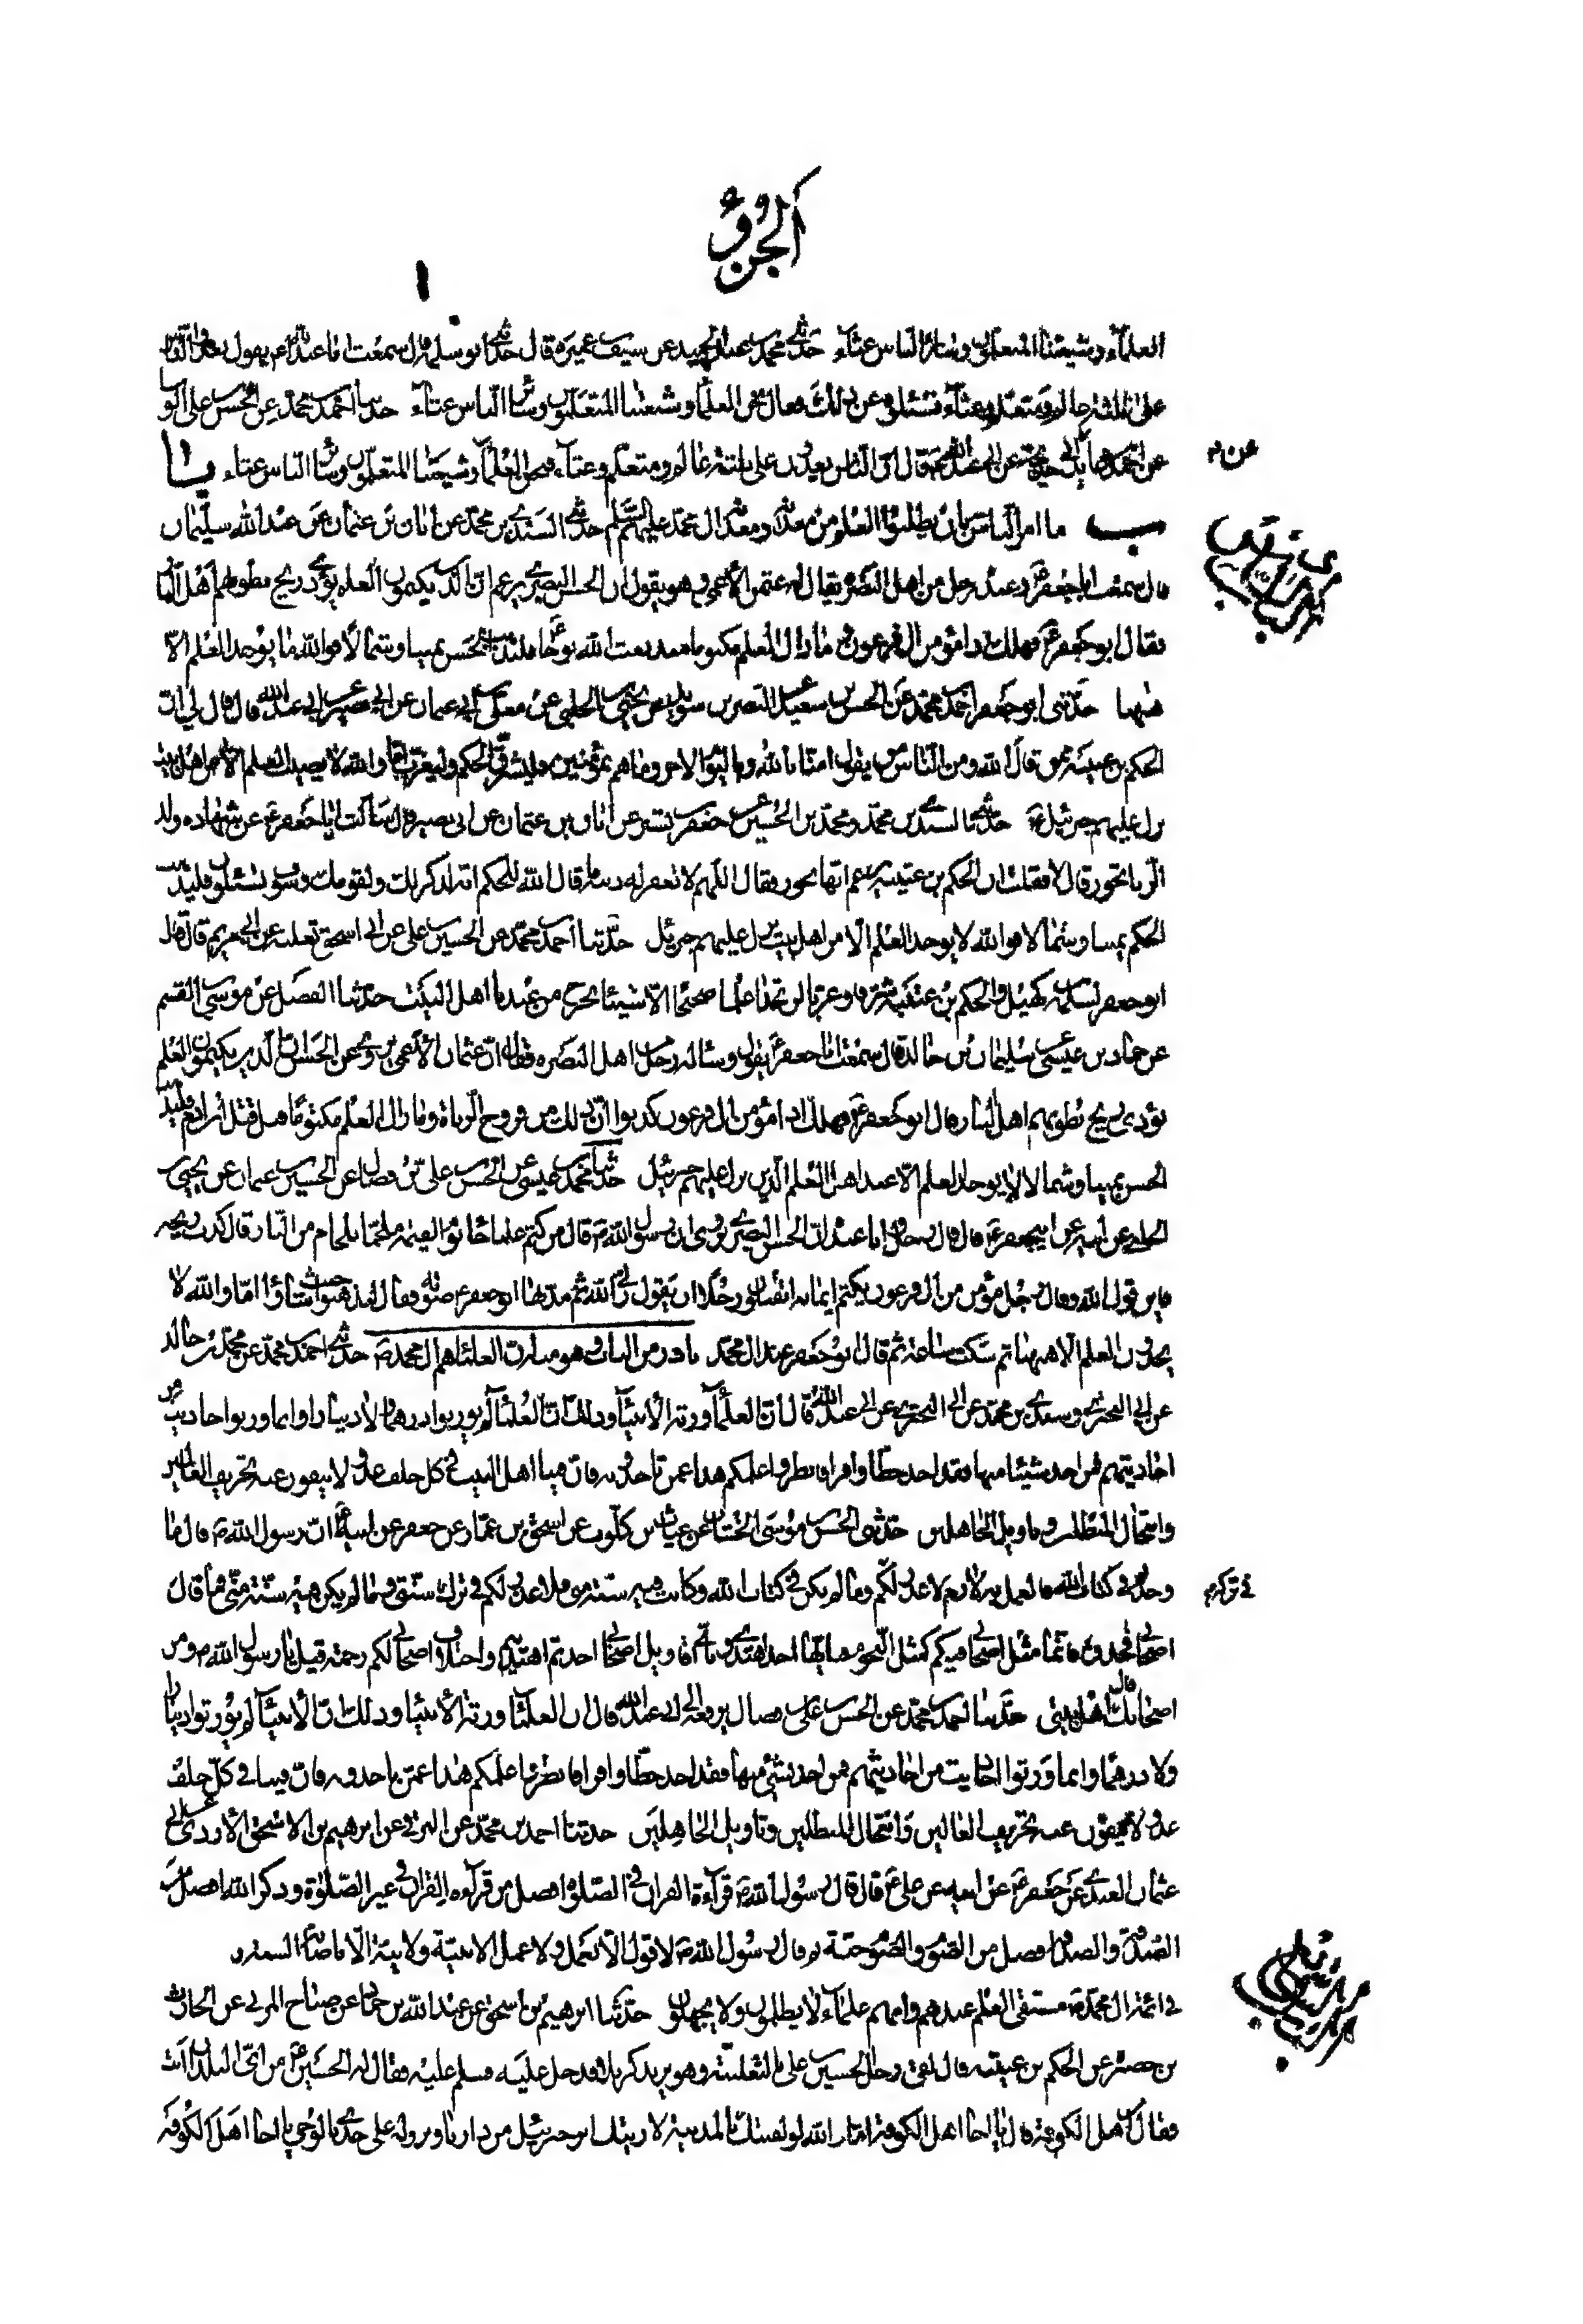 الجزؤ
١
العلماء وشيعتنا المتعلمون وسائر الناس غثاء حدثني محمد بن عبد الحميد عن سيف بن عميرة قال حدثني ابو سلمة قال سمعت ابا عبد الله ع يقول يغدوا الناس
على ثلثة عالم ومتعلم وغثاء فسئلوه عن ذلك فقال نحن العلماء وشيعتنا المتعلمون وسائر الناس غثاء حدثنا احمد بن محمد عن الحسن بن علي الوشا
عن ابي خديجة عن ابي عبد الله ع قال ان الناس يغدون على ثلثة عالم ومتعلم وغثاء فنحن العلماء وشيعتنا المتعلمون وسائر الناس غثاء با
عن م
ب ما امر الناس بان يطلبوا العلم من معدنه ومعدنه ال محمد عليهم السلم حدثني السندي بن محمد عن ابان بن عثمان عن عبد الله بن سليمان
قال سمعت ابا جعفر ع وعنده رجل من اهل البصرة يقال له عثمن الاعمى وهو يقول ان الحسن البصري يزعم ان الذين يكتمون العلم يؤذي ريح بطونهم اهل النار
فقال ابو جعفر ع فهلك اذا مؤمن ال فرعون ما زال العلم مكتوما منذ بعث الله نوحا ع فليذهب الحسن يمينا وشمالا فوالله ما يوجد العلم الا
ههنا حدثني ابو جعفر احمد بن محمد عن الحسين بن سعيد عن النضر بن سويد عن يحيى الحلبي عن معلى بن ابي عثمان عن ابي بصير عن ابي عبد الله قال قال لي ان
الحكم بن عيينة ممن قال الله ومن الناس من يقول امنا بالله وباليوم الاخر وما هم بمؤمنين فليشرق الحكم وليغرب اما والله لا يصيب العلم الا من اهل بيت
نزل عليهم جبرئيل ع حدثنا السندي بن محمد ومحمد بن الحسين عن جعفر بن بشير عن ابان بن عثمان عن ابي بصير قال سألت ابا جعفر ع عن شهادة ولد
الزنا تجوز قال لا فقلت ان الحكم بن عتيبة يزعم انها تجوز فقال اللهم لا تغفر له ذنبه ما قال الله للحكم انه لذكر لك ولقومك وسوف تسئلون فليذهب
الحكم يمينا وشمالا فوالله لا يوجد العلم الا من اهل بيت نزل عليهم جبرئيل حدثنا احمد بن محمد عن الحسين بن علي عن ابي اسحق ثعلبة عن ابي مريم قال قال
ابو جعفر لسلمة بن كهيل والحكم بن عتيبة شرقا وغربا لن تجدا علما صحيحا الا شيئا يخرج من عندنا اهل البيت حدثنا الفضل عن موسى بن القسم
عن حماد بن عيسى عن سليمان بن خالد قال سمعت ابا جعفر ع يقول وسأله رجل من اهل البصرة فقال ان عثمان الاعمى يروي عن الحسن ان الذين يكتمون العلم
تؤذي ريح بطونهم اهل النار قال ابو جعفر ع فهلك اذا مؤمن ال فرعون كذبوا ان ذلك من فروج الزناة وما زال العلم مكتوما قبل قتل ابن ادم فليذهب
الحسن يمينا وشمالا لا يوجد العلم الا عند اهل العلم الذين نزل عليهم جبرئيل حدثنا محمد بن عيسى عن الحسن بن علي بن فضال عن الحسين بن عثمان عن يحيى بن
الحلبي عن ابيه عن ابي جعفر ع قال قال رجل وانا عنده ان الحسن البصري يروي ان رسول الله ص قال من كتم علما جاء يوم القيمة ملجما بلجام من النار قال كذب ويحه
فاين قول الله وقال رجل مؤمن من ال فرعون يكتم ايمانه اتقتلون رجلا ان يقول ربي الله ثم مد بها ابو جعفر ع صوته فقال ليذهبوا حيث شاؤا اما والله لا
يجدون العلم الا ههنا ثم سكت ساعة ثم قال ابو جعفر عند ال محمد نادر من الباب وهو منه ان العلماء هم ال محمد ص حدثني احمد بن محمد عن محمد بن خالد
عن ابي البختري وسندي بن محمد عن ابي البختري عن ابي عبد الله ع قال ان العلماء ورثة الانبياء وذلك ان العلماء لم يورثوا درهما ولا دينارا وانما ورثوا احاديث من
احاديثهم فمن اخذ شيئا منها فقد اخذ حظا وافرا فانظروا علمكم هذا عمن تاخذونه فان فينا اهل البيت في كل خلف عدولا ينفون عنه تحريف الغالين
وانتحال المبطلين وتاويل الجاهلين حدثني الحسن بن موسى الخشاب عن غياث بن كلوب عن اسحق بن عمار عن جعفر عن ابيه ع ان رسول الله ص قال ما
وجدتم في كتاب الله فالعمل به لازم لا عذر لكم وما لم يكن في كتاب الله وكانت فيه سنة مني فلا عذر لكم في ترك سنتي وما لم يكن فيه سنة مني فما قال
في تركه
اصحابي فخذوه فانما مثل اصحابي فيكم كمثل النجوم فبايها اخذ اهتدي وباي اقاويل اصحابي اخذتم اهتديتم واختلاف اصحابي لكم رحمة قيل يا رسول الله ومن
اصحابك قال اهل بيتي حدثنا احمد بن محمد عن الحسن بن علي بن فضال يرفعه الى ابي عبد الله قال ان العلماء ورثة الانبياء وذلك ان الانبياء لم يورثوا دينارا
ولا درهما وانما ورثوا احاديث من احاديثهم فمن اخذ بشيء منها فقد اخذ حظا وافرا فانظروا علمكم هذا عمن تاخذونه فان فينا في كل خلف
عدولا ينفون عنه تحريف الغالين وانتحال المبطلين وتاويل الجاهلين حدثنا احمد بن محمد عن البرقي عن ابرهيم بن الاسحق الازدي عن ابي
عثمان العبدي عن جعفر ع عن ابيه عن علي ع قال قال رسول الله ص قرآءة القران في الصلوة افضل من قرآءة القران في غير الصلوة وذكر الله افضل من
الصدقة والصدقة افضل من الصوم والصوم جنة ثم قال رسول الله ص لا قول الا بعمل ولا عمل الا بنية ولا نية الا باصابة السنة
في ائمة ال محمد ص مستقى العلم عندهم وانهم علماء لا يظلمون ولا يجهلون حدثنا ابرهيم بن اسحق عن عبد الله بن حماد عن صباح المزني عن الحارث
بن حصيرة عن الحكم بن عيينة قال لقي رجل الحسين بن علي بالثعلبية وهو يريد كربلا فدخل عليه فسلم عليه فقال له الحسين ع من اي البلدان انت
فقال من اهل الكوفة قال يا اخا اهل الكوفة اما والله لو لقيتك بالمدينة لاريتك اثر جبرئيل من دارنا ونزوله على جدي بالوحي يا اخا اهل الكوفة